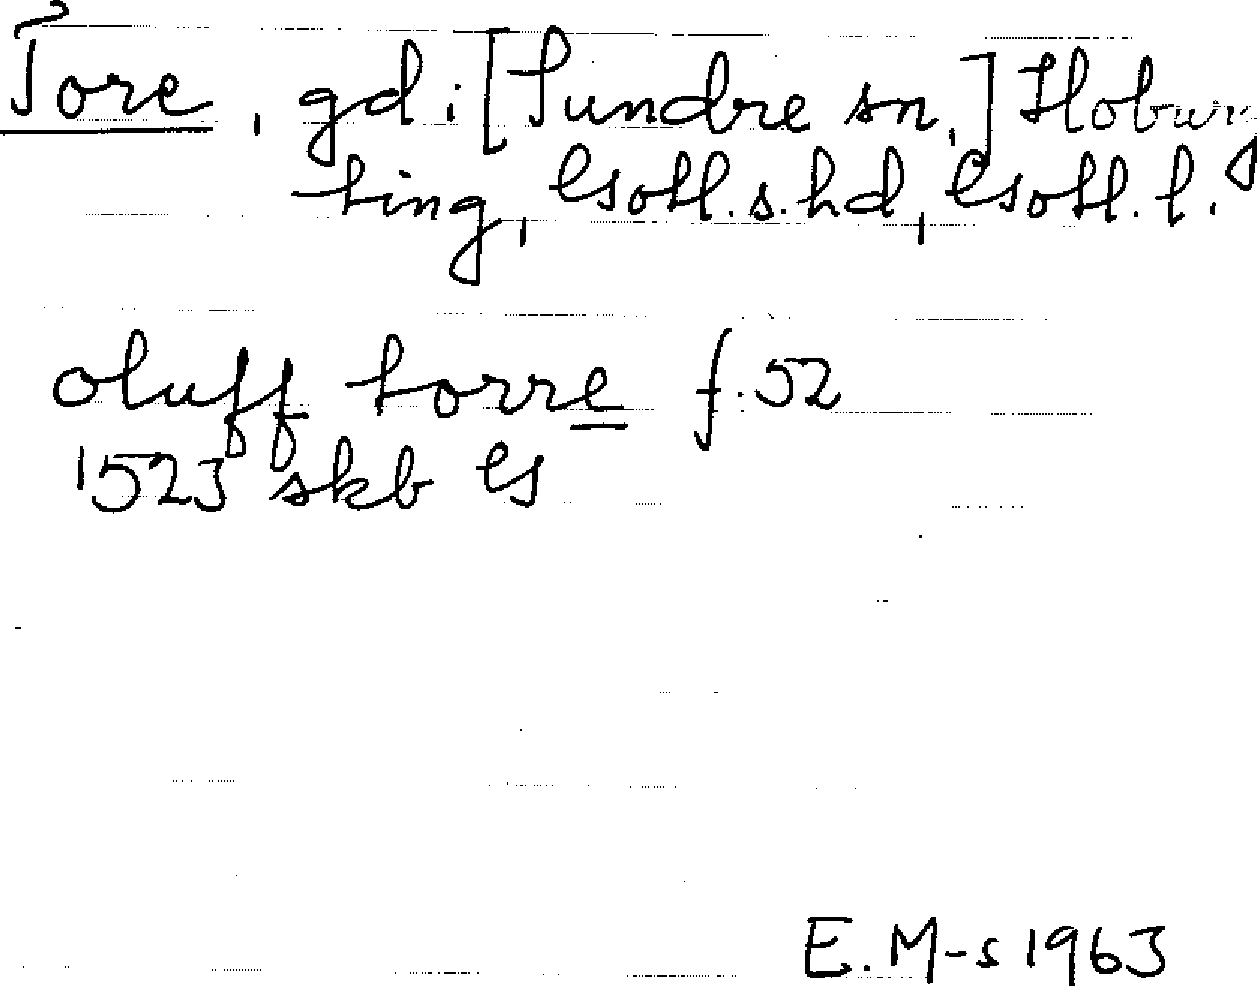 Tore, gd i [Sundre sn,] Hoburg
ting, Gotl.s.hd, Gotl. l.
oluff torre f. 52
1523 skb G
E. M-s 1963